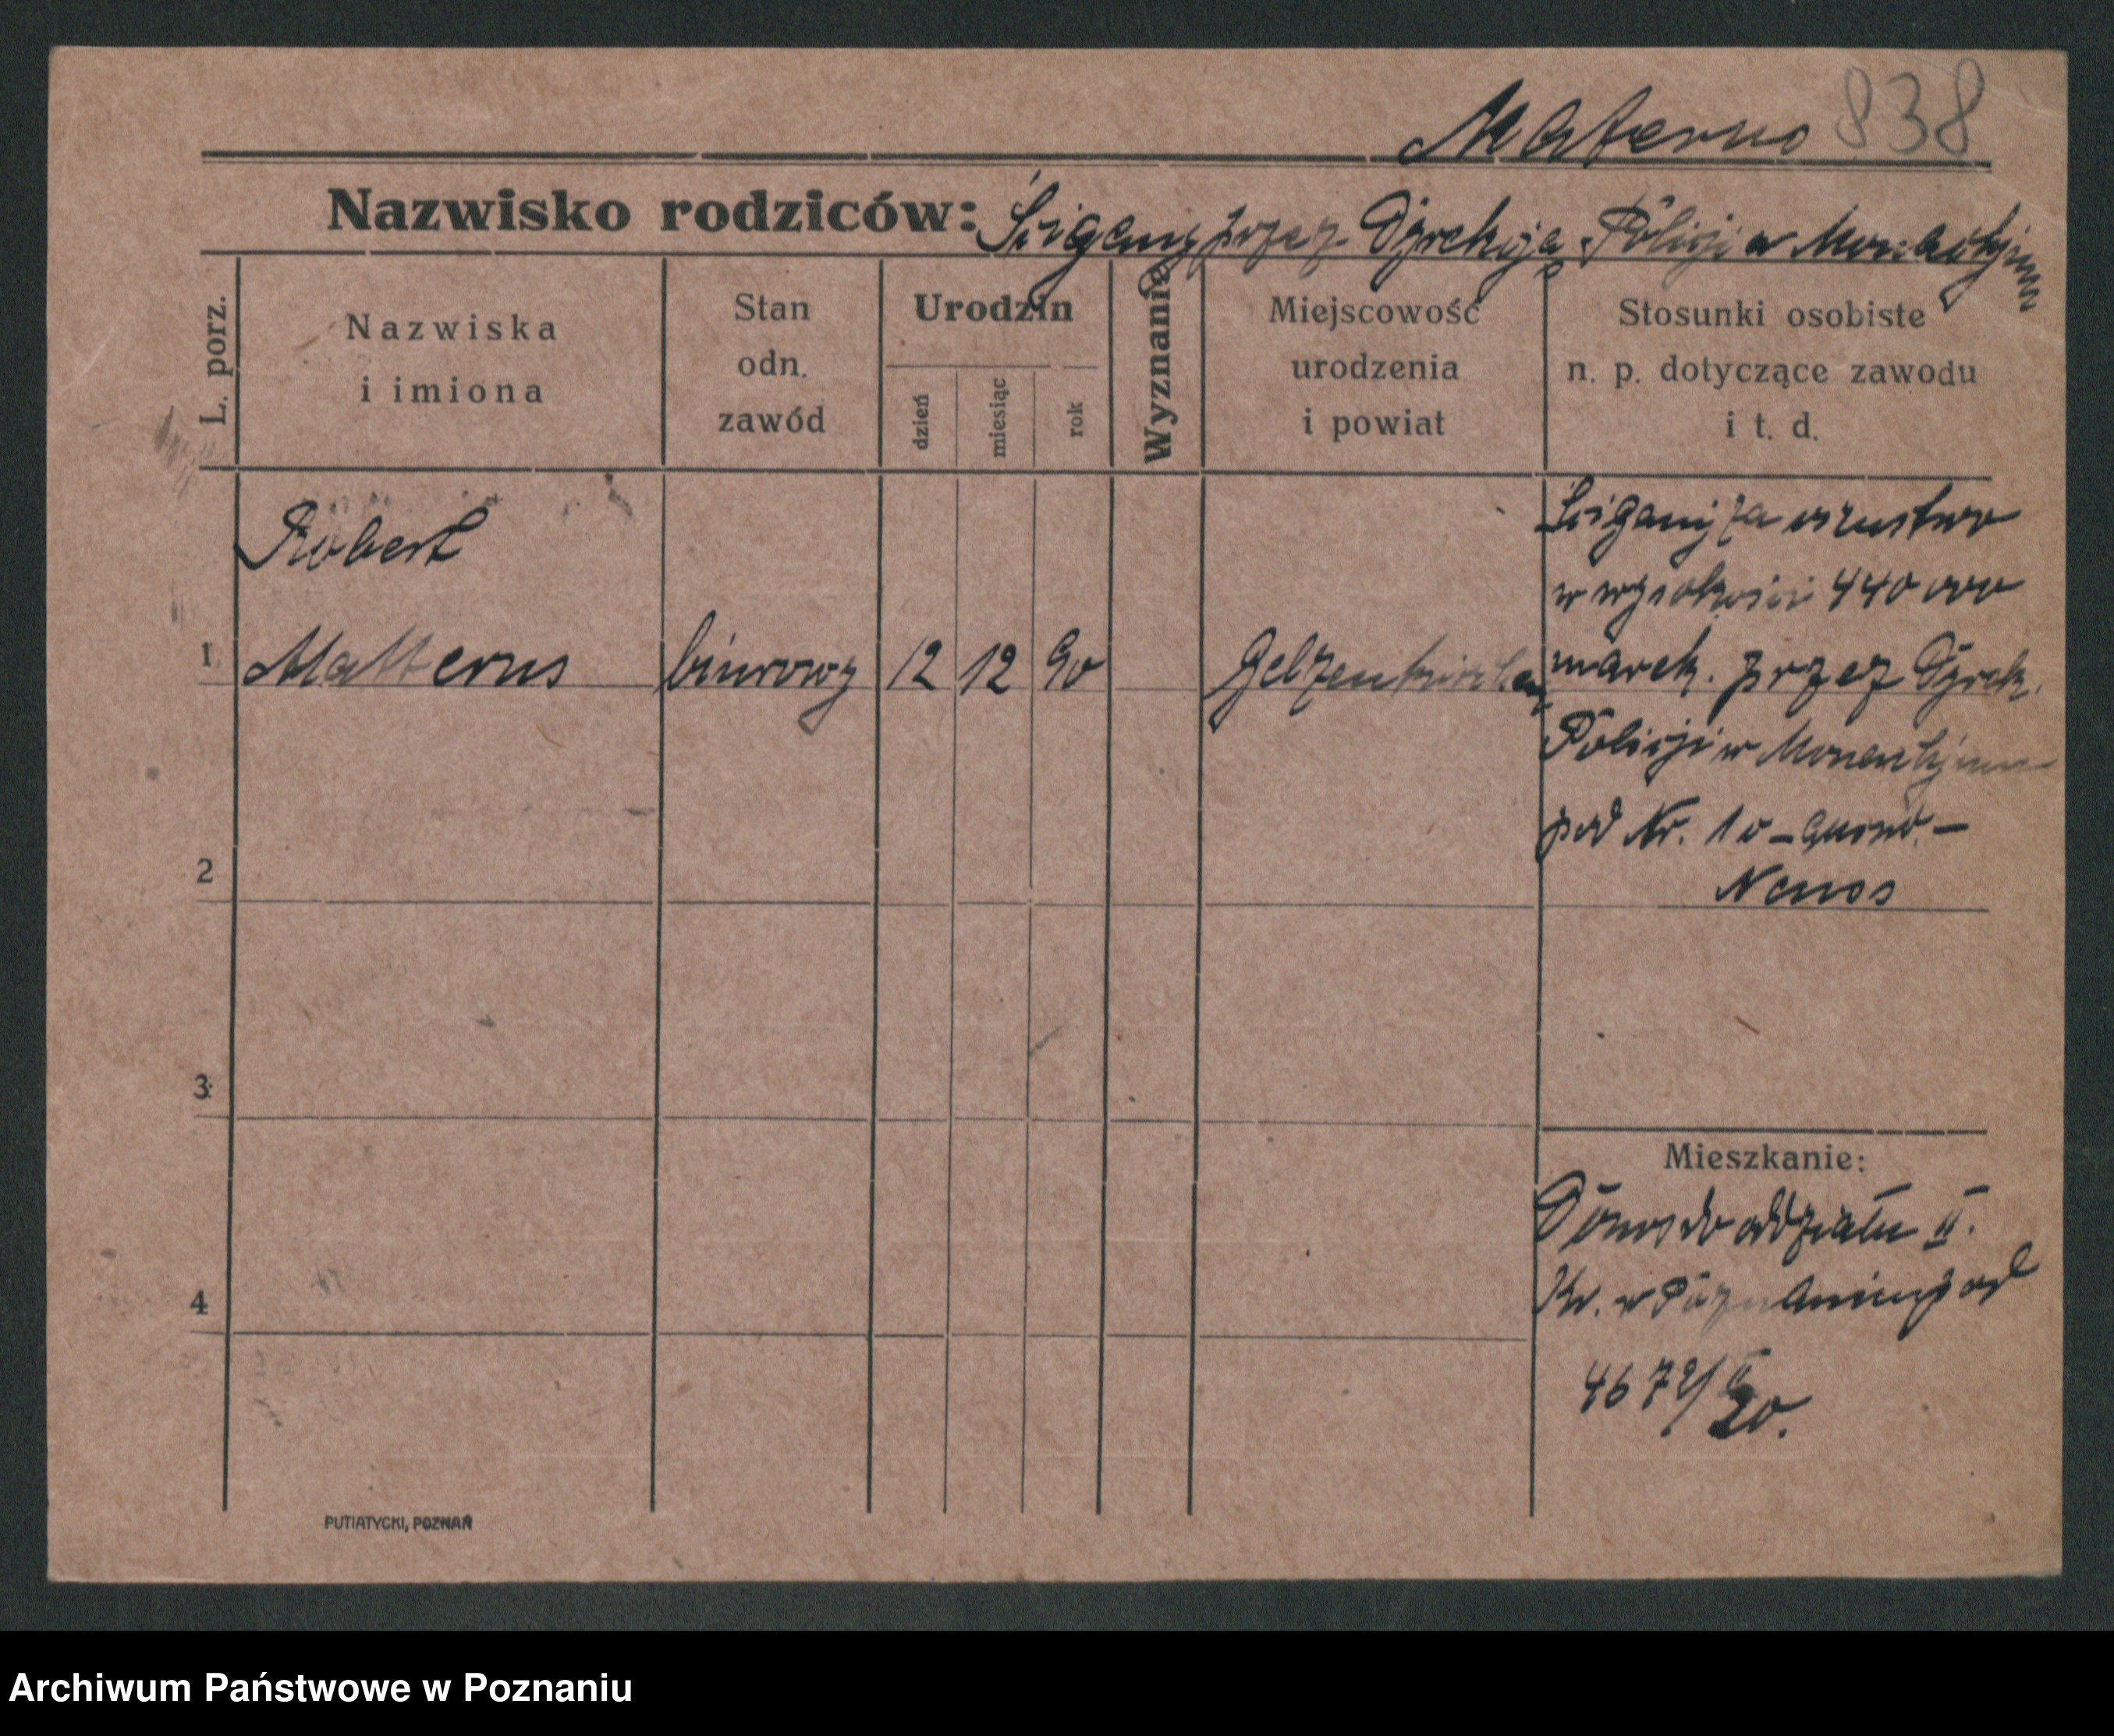 Materno 838
Nazwisko rodziców: Ścigany przez Dyrekcję Policji w Monachjum
L. porz.
Nazwiska
i imiona
Stan
odn.
zawód
Urodzin
dzień
miesiąc
rok
Wyznanie
Miejscowość
urodzenia
i powiat
Stosunki osobiste
n. p. dotyczące zawodu
i t. d.
Robert
1 Matterns biurowy 12 12 90 Gelzenkirchen
Ścigany za oszustwo
w wysokości 440 000
marek. przez Dyrek.
Policji w Monachjum
pod Nr. 10
2
3
4
Mieszkanie:
Donos do oddziału II.
Kr. w Poznaniu pod
4672/II 20.
PUTIATYCKI, POZNAŃ
Archiwum Państwowe w Poznaniu